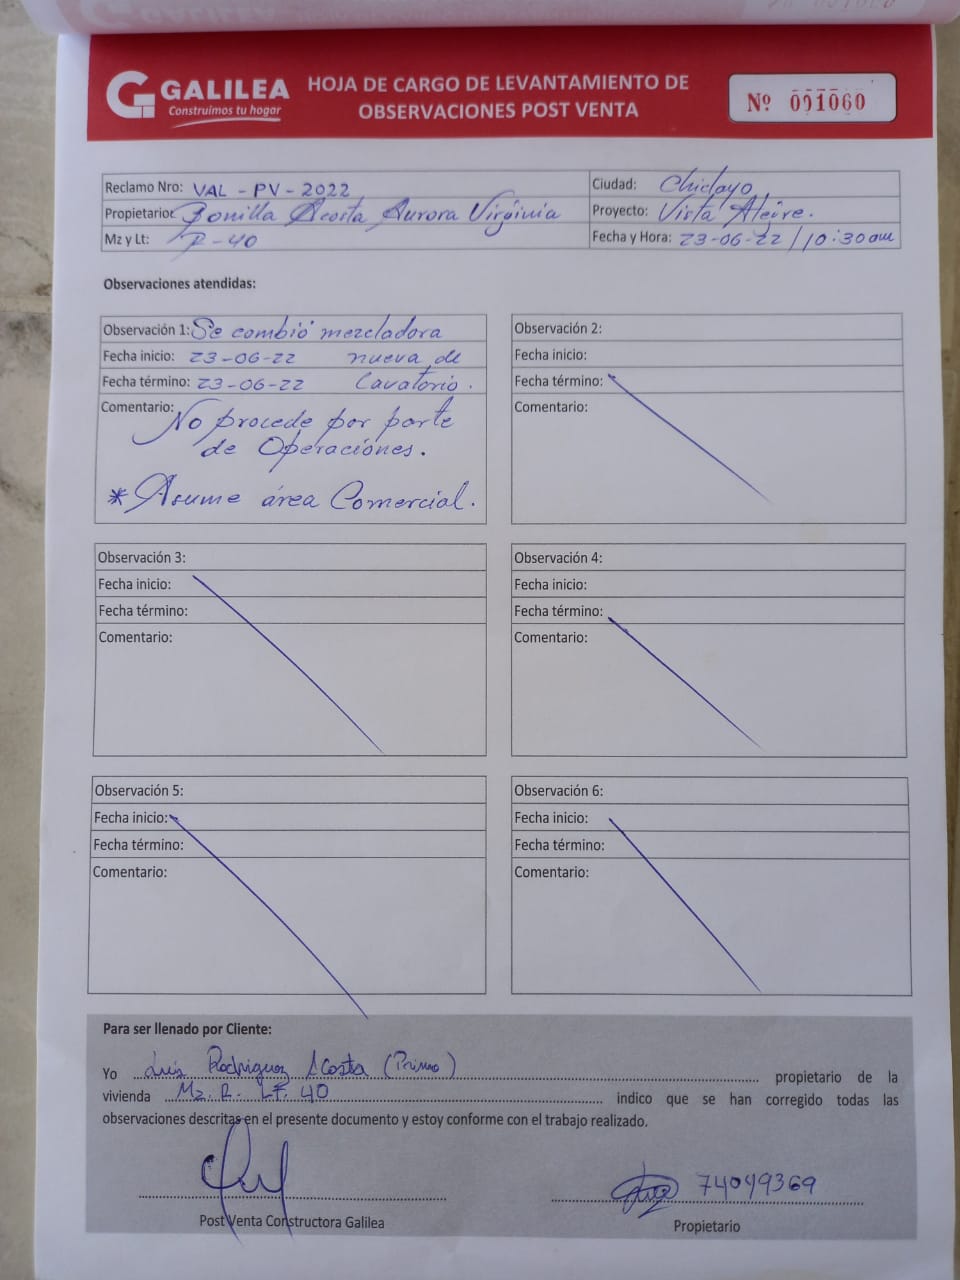 GALILEA
Construimos tu hogar
HOJA DE CARGO DE LEVANTAMIENTO DE
OBSERVACIONES POST VENTA
Nº 001060
Reclamo Nro: VAL - PV - 2022
Ciudad: Chiclayo
Propietario: Bonilla Acosta Aurora Virginia
Proyecto: Vista Alegre.
Mz y Lt: R-40
Fecha y Hora: 23-06-22 / 10:30am
Observaciones atendidas:
Observación 1: Se combió mezcladora
Fecha inicio: 23-06-22 nueva de
Fecha término: 23-06-22 Lavatorio.
Comentario: No procede por parte
de Operaciones.
* Asume área Comercial.
Observación 2:
Fecha inicio:
Fecha término:
Comentario:
Observación 3:
Fecha inicio:
Fecha término:
Comentario:
Observación 4:
Fecha inicio:
Fecha término:
Comentario:
Observación 5:
Fecha inicio:
Fecha término:
Comentario:
Observación 6:
Fecha inicio:
Fecha término:
Comentario:
Para ser llenado por Cliente:
Yo Luis Rodriguez Acosta (Primo) propietario de la
vivienda Mz. R. LT. 40 indico que se han corregido todas las
observaciones descritas en el presente documento y estoy conforme con el trabajo realizado.
74049369
Post Venta Constructora Galilea
Propietario